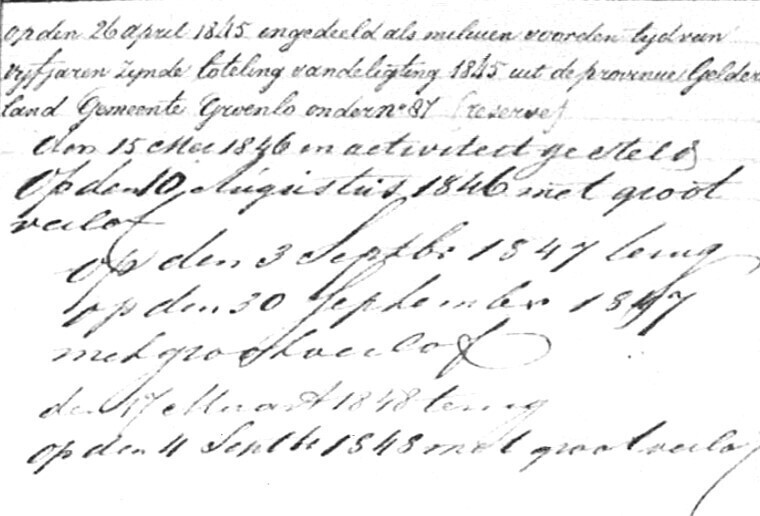 op den 26 april 1845 ingedeeld als milicien voor den tijd van
vyf jaren zynde loteling van de ligting 1845 uit de provincie Gelder
land Gemeente Groenlo onder n° 87 (reserve)
den 15 Mei 1846 in activiteit gesteld
Op den 10 Augustus 1846 met groot
verlof
op den 3 Septbr 1847 terug
op den 30 September 1847
met groot verlof
den 17 Maart 1848 terug
op den 4 Septbr 1848 met groot verlof